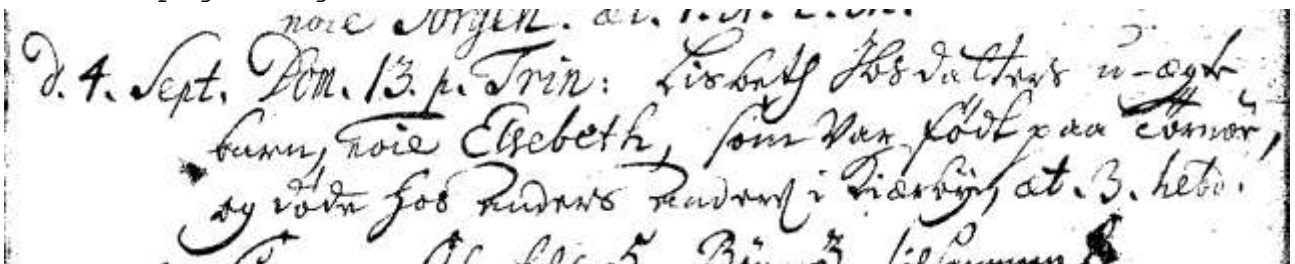 noie Jörgen. æt. 1. A. 2. M.
d. 4. Sept. Dom. 13. p. Trin: Lisbeth Ibsdatters u-ægte
barn, noie Elsebeth, som var födt paa Törnör,
og döde hos Anders Anders: i Kiærbÿe, æt. 3. hebd.